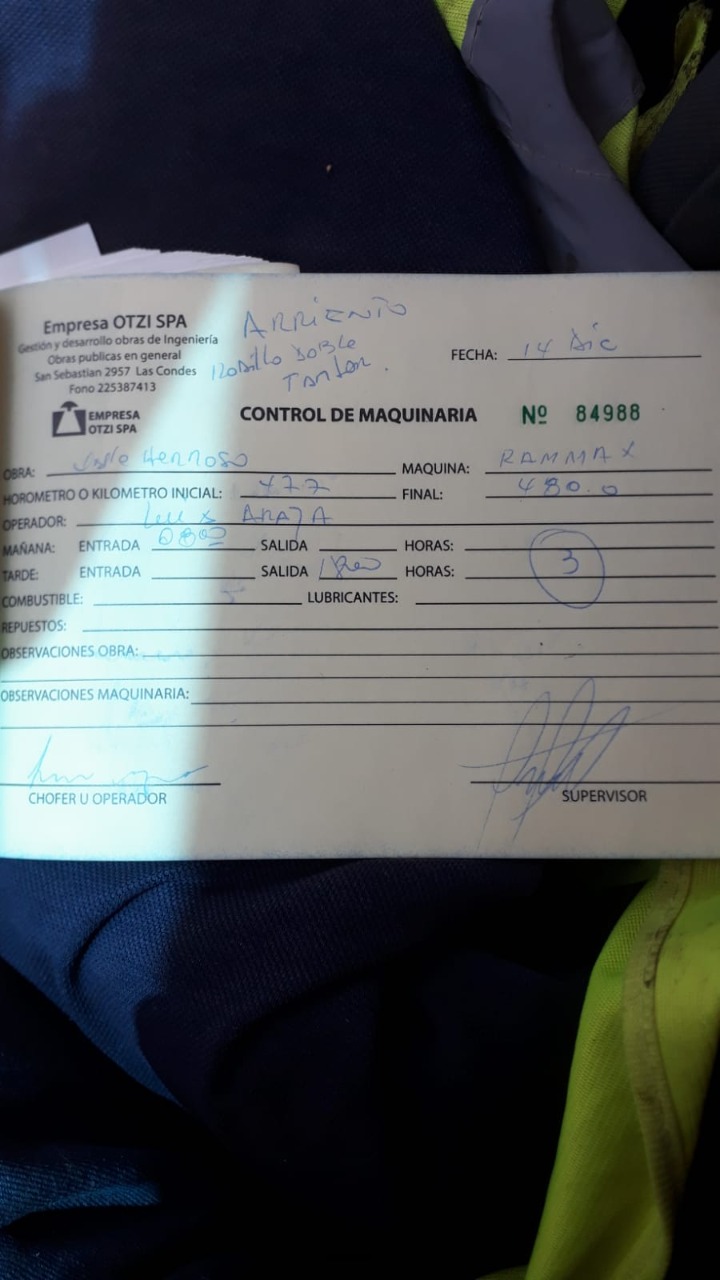 Empresa OTZI SPA
Gestión y desarrollo obras de Ingeniería
Obras publicas en general
San Sebastian 2957 Las Condes
Fono 225387413
EMPRESA
OTZI SPA
ARRIENTO
Rodillo Doble
Tambor.
FECHA: 14 Dic
CONTROL DE MAQUINARIA Nº 84988
OBRA: Valle Hermoso MAQUINA: RAMMAX
HOROMETRO O KILOMETRO INICIAL: 477 FINAL: 480.0
OPERADOR: Luis ARAYA
MAÑANA: ENTRADA 0800 SALIDA HORAS:
TARDE: ENTRADA SALIDA 1800 HORAS: 3
COMBUSTIBLE: LUBRICANTES:
REPUESTOS:
OBSERVACIONES OBRA:
OBSERVACIONES MAQUINARIA:
CHOFER U OPERADOR SUPERVISOR